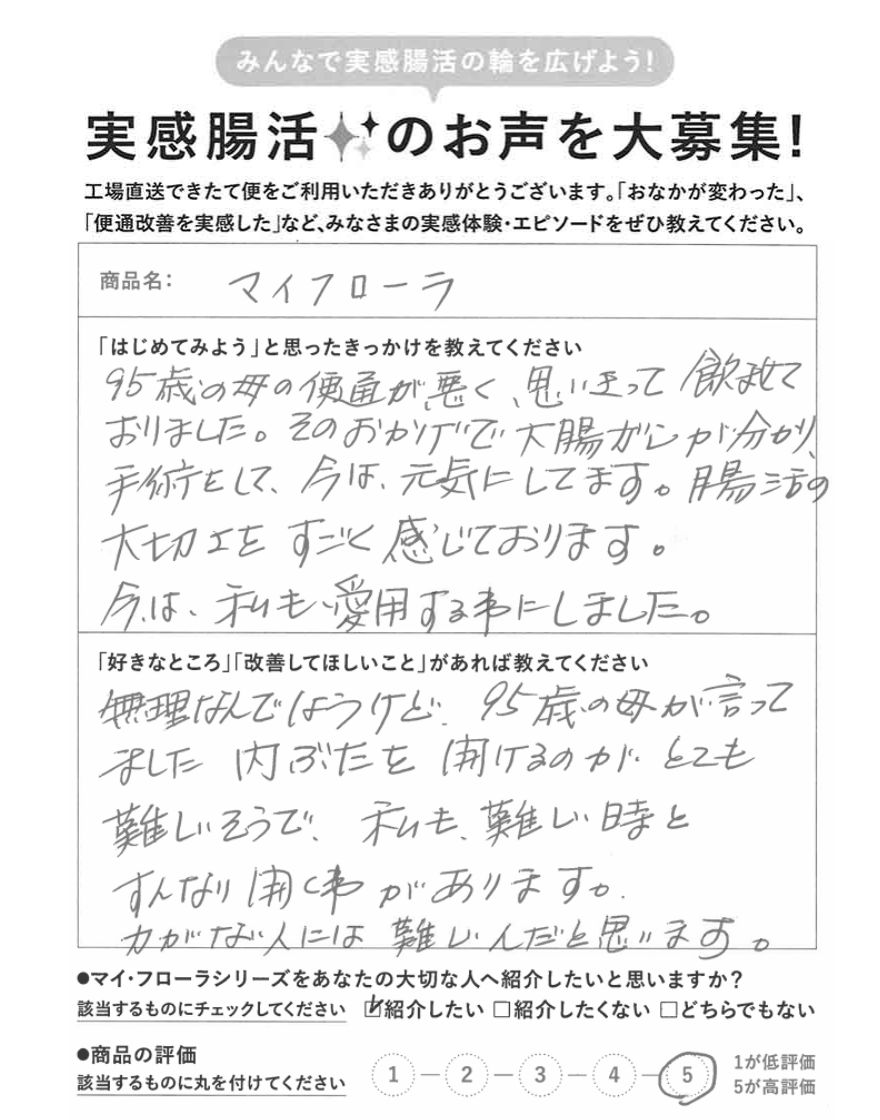 みんなで実感腸活の輪を広げよう!
実感腸活のお声を大募集!
工場直送できたて便をご利用いただきありがとうございます。「おなかが変わった」、
「便通改善を実感した」など、みなさまの実感体験・エピソードをぜひ教えてください。
商品名: マイフローラ
「はじめてみよう」と思ったきっかけを教えてください
95歳の母の便通が悪く、思いきって飲ませて
おりました。そのおかげで大腸がんが分かり、
手術をして、今は、元気にしてます。腸活の
大切さを すごく感じております。
今は、私も愛用する事にしました。
「好きなところ」「改善してほしいこと」があれば教えてください
無理なんでしょうけど、95歳の母が言って
ました 内ぶたを 開けるのが とても
難しいそうで、私も、難しい時と
すんなり開く事があります。
力がない人には難しいんだと思います。
●マイ・フローラシリーズをあなたの大切な人へ紹介したいと思いますか?
該当するものにチェックしてください ☑紹介したい □紹介したくない □どちらでもない
●商品の評価
該当するものに丸を付けてください
1 — 2 — 3 — 4 — 5
1が低評価
5が高評価